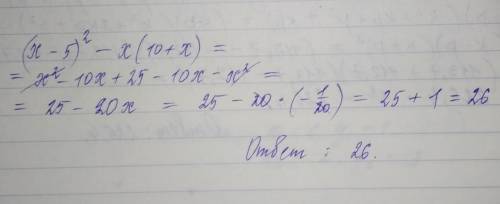 (x - 5)² - x(10 + x) =
= x² - 10x + 25 - 10x - x² =
= 25 - 20x = 25 - 20 · (-1/20) = 25 + 1 = 26
Ответ : 26.